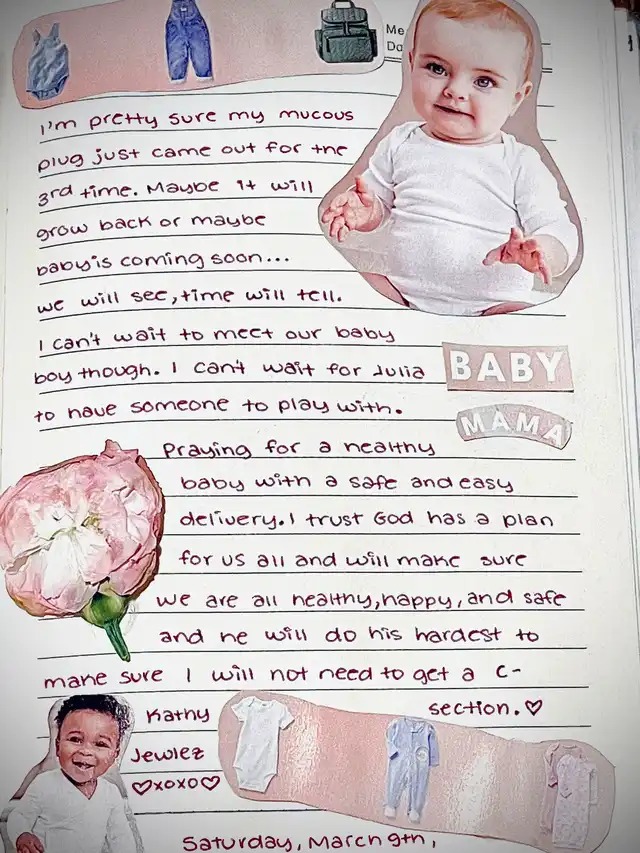 Me
Da
I'm pretty sure my mucous
plug just came out for the
3rd time. Maybe it will
grow back or maybe
baby is coming soon...
we will see, time will tell.
I can't wait to meet our baby
boy though. I can't wait for Julia
to have someone to play with.
BABY
MAMA
Praying for a healthy
baby with a safe and easy
delivery. I trust God has a plan
for us all and will make sure
we are all healthy, happy, and safe
and he will do his hardest to
make sure I will not need to get a C-
section.♡
Kathy
Jewlez
♡xoxo♡
Saturday, March 9th,